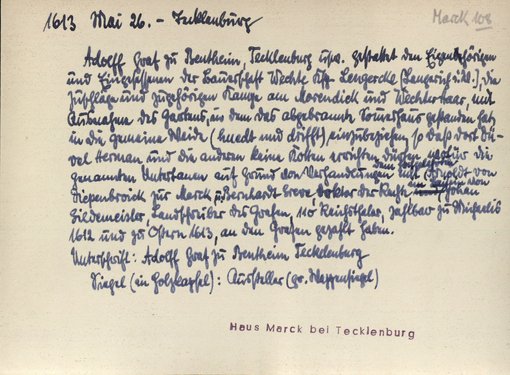 1613 Mai 26. - Tecklenburg
Marck 108
Adolff Graf zu Bentheim, Tecklenburg usw. gestattet den Eigenhörigen
und Eingesessenen der Bauerschaft Wechte Ksp. Lengercke (Lengerich i.W.), die
Zuschläge und zugehörigen Kämpe am Morendick und Wechterhaar, mit
Ausnahme des Gartens, in dem das abgebrannte Schurhaus gestanden hat,
in die gemeine Weide (hnedt und drifft) einzubeziehen, so daß dort
vel Herman und die anderen keine Kotten errichten dürfen, wofür die
genannten Untertanen auf Grund von Verhandlungen mit Arnoldt von
Diepenbroick zur Marck, Bernhardt Greve, Doktor der Rechte, Johan
Gildemeister, Landschreiber des Grafen, 110 Reichsthaler, zahlbar zu Michaelis
1612 und zu Ostern 1613, an den Grafen gezahlt haben.
Unterschrift: Adolff Graf zu Bentheim Tecklenburg
Siegel (in Holzkapsel): Aussteller (gr. Wappensiegel)
Haus Marck bei Tecklenburg